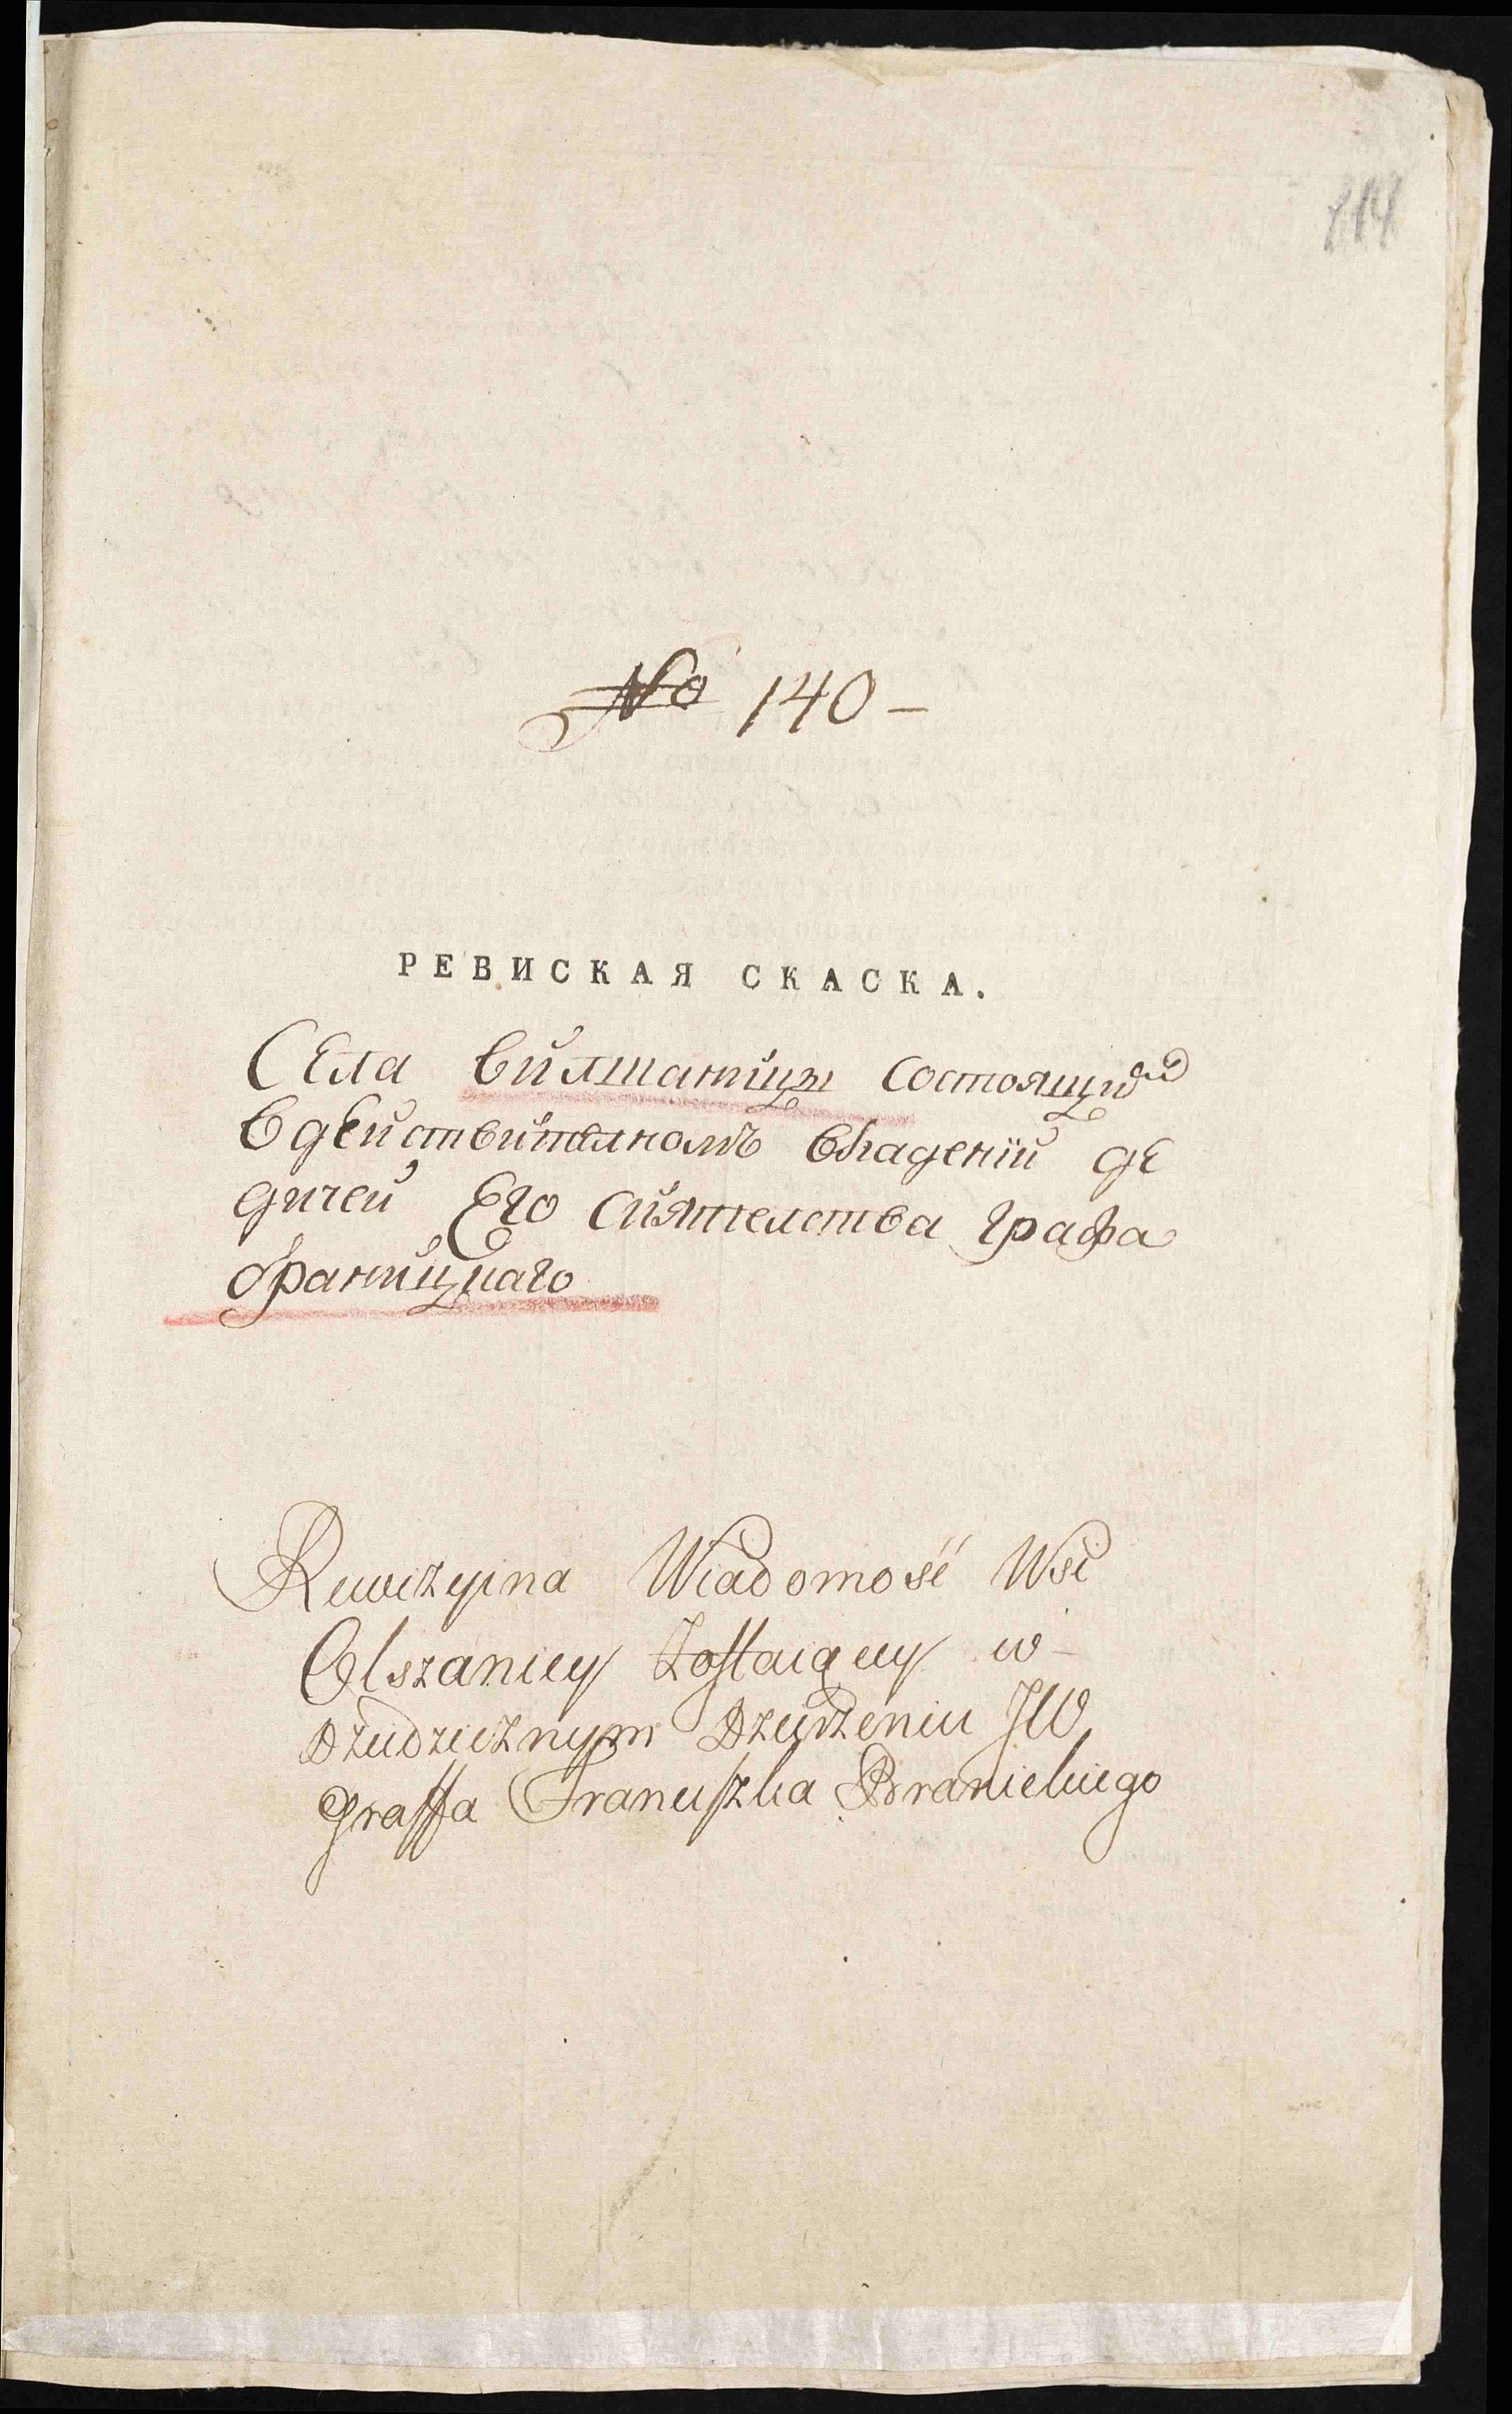 № 140 –
РЕВИСКАЯ СКАСКА.
Села вилшаницы состоящий
в действителномъ владении де
дичей Его сиятелства графа
браницкаго
Rewizyina Wiadomość Wsi
Olszanicy Zostaiącey w
Dziedzicznym Dzierżeniu JW
Graffa Franciszka Branickiego